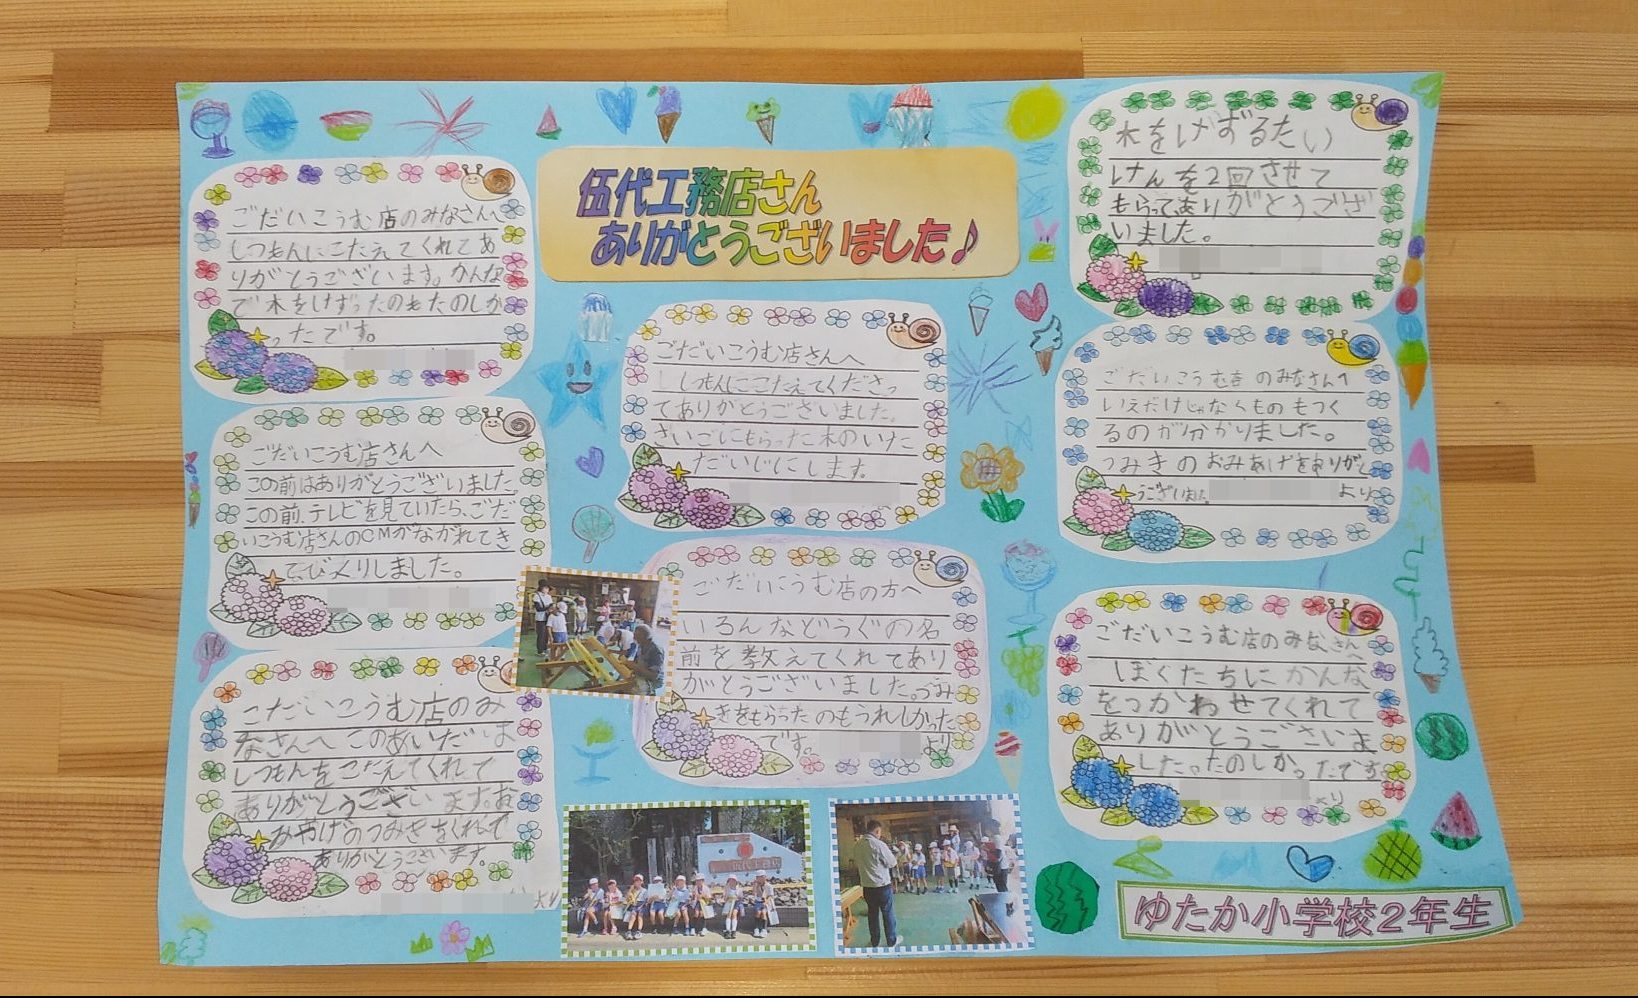 伍代工務店さん
ありがとうございました♪
ごだいこうむ店のみなさんへ
しつもんにこたえてくれてあ
りがとうございます。かんな
で木をけずったのもたのしか
ったです。
ごだいこうむ店さんへ
この前はありがとうございました。
この前、テレビを見ていたら、ごだ
いこうむ店さんのCMがながれてき
てびくりしました。
ごだいこうむ店のみ
なさんへ このあいだは
しつもんをこたえてくれて
ありがとうございます。お
みやげのつみきをくれて
ありがとうございます。
より
ごだいこうむ店さんへ
しつもんにこたえてくださっ
てありがとうございました。
さいごにもらった木のいた
だいじにします。
ごだいこうむ店の方へ
いろんなどうぐの名
前を教えてくれてあり
がとうございました。つみ
きをもらったのもうれしかった
です。
より
木をけずるたい
けんを2回させて
もらってありがとうござ
いました。
ごだいこうむ店のみなさんへ
いえだけじゃなくものもつく
るのが分かりました。
つみきのおみあげをありがと
うございました。
より
ごだいこうむ店のみなさんへ
ぼくたちにかんな
をつかわせてくれて
ありがとうございま
した。たのしかったです
より
ゆたか小学校2年生